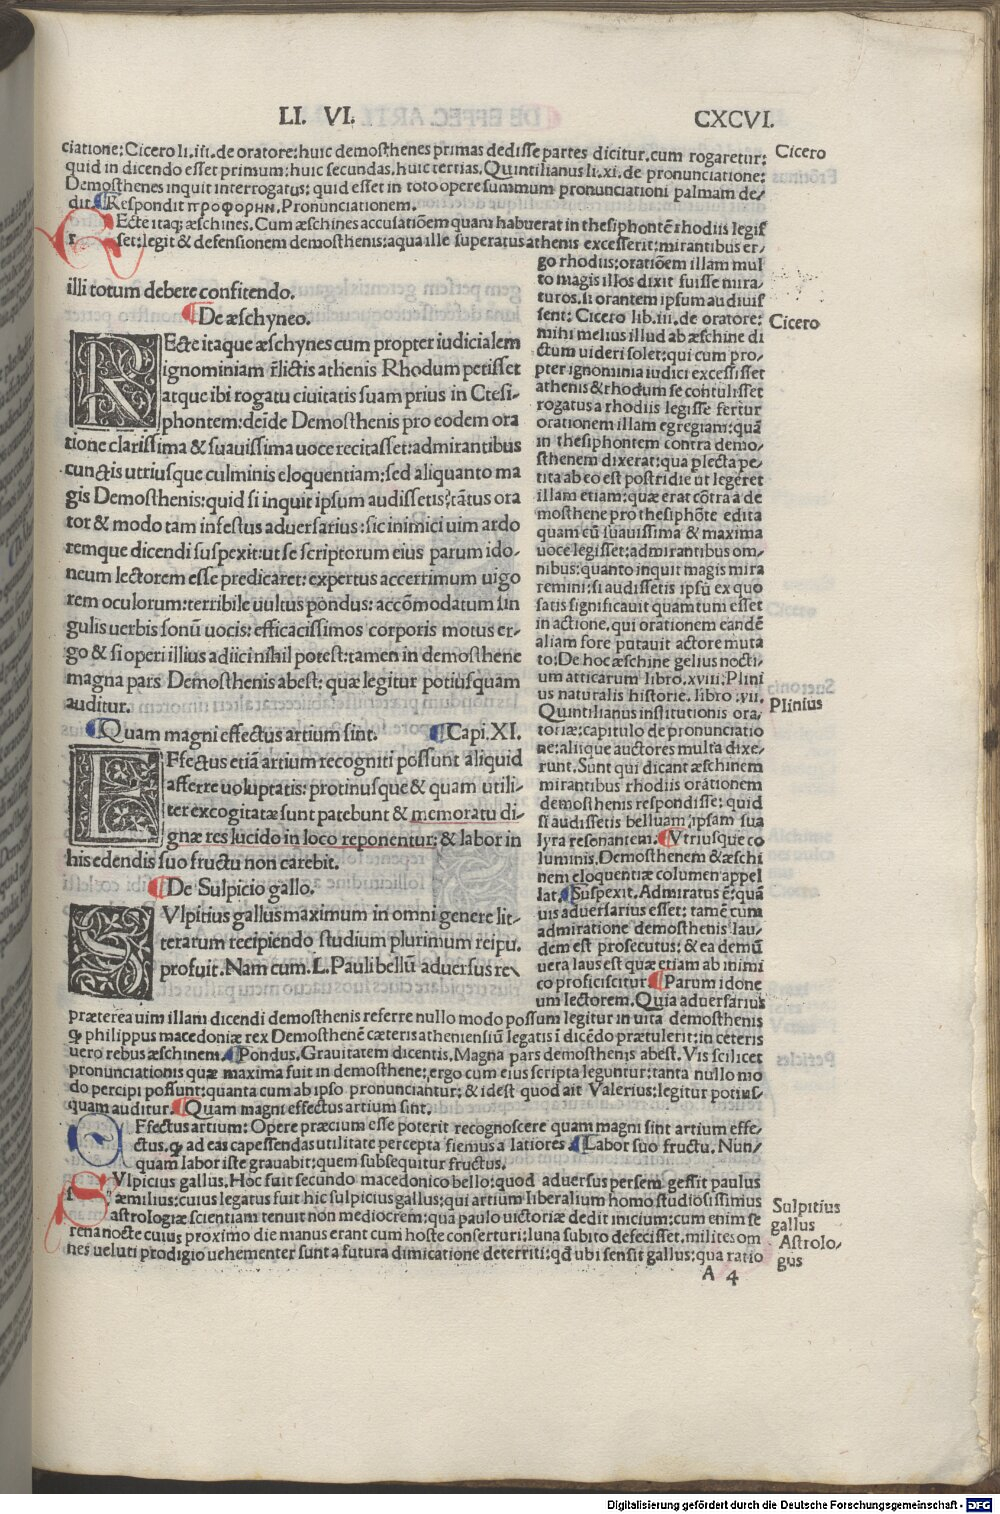 LI. VI.
CXCVI.
ciatione: Cicero li. iii. de oratore: huic demosthenes primas dedisse partes dicitur. cum rogaretur:
quid in dicendo esset primum: huic secundas. huic tertias. Quintilianus li. xi. de pronunciatione:
Demosthenes inquit interrogatus: quid esset in toto opere summum pronunciationi palmam de/
dit. Respondit προφορηι. Pronunciationem.
Cicero
r ECte itaq; æschines. Cum æschines accusatiõem quam habuerat in thesiphontẽ rhodiis legis
set: legit & defensionem demosthenis: aqua ille superatus athenis excesserit: mirantibus er/
go rhodiis: oratiõem illam mul
to magis illos dixit fuisse mira/
turos. si orantem ipsum audiuis
sent: Cicero lib. iii. de oratore:
mihi melius illud ab æschine di
ctum uideri solet: qui cum pro/
pter ignominia iudici excessisset
athenis & rhodum se contulisset
rogatus a rhodiis legisse fertur
orationem illam egregiam: quã
in thesiphontem contra demo/
sthenem dixerat: qua plecta pe/
tita ab eo est postridie ut legeret
illam etiam: quæ erat cõtra a de
mosthene pro thesiphõte edita
quam cũ suauissima & maxima
uoce legisset: admirantibus om/
nibus: quanto inquit magis mira
remini: si audissetis ipsũ ex quo
satis significauit quamtum esset
in actione. qui orationem eandẽ
aliam fore putauit actore muta
to: De hoc æschine gelius nocti/
um atticarum libro. xviii: Plini
us naturalis historie. libro. vii.
Quintilianus institutionis ora/
toriæ: capitulo de pronunciatio
ne: aliique auctores multa dixe/
runt. Sunt qui dicant æschinem
mirantibus rhodiis orationem
demosthenis respondisse: quid
si audissetis belluam: ipsam sua
lyra resonantem. Vtriusque co
luminis. Demosthenem & æschi
nem eloquentiæ columen appel
lat. Suspexit. Admiratus ẽ: quã
uis aduersarius esset: tamẽ cum
admiratione demosthenis lau/
dem est prosecutus: & ea demũ
uera laus est quæ etiam ab inimi
co proficiscitur. Parum idone
um lectorem. Quia aduersarius
Cicero
Plinius
illi totum debere confitendo.
De æschyneo.
REcte itaque æschynes cum propter iudicialem
ignominiam rĩlictis athenis Rhodum petisset
atque ibi rogatu ciuitatis suam prius in Ctesi-
phontem: deĩde Demosthenis pro eodem ora
tione clarissima & suauissima uoce recitasset: admirantibus
cunctis utriusque culminis eloquentiam: sed aliquanto ma
gis Demosthenis: quid si inquit ipsum audissetis: tãtus ora
tor & modo tam infestus aduersarius: sic inimici uim ardo
remque dicendi suspexit: ut se scriptorum eius parum ido-
neum lectorem esse predicaret: expertus accerrimum uigo
rem oculorum: terribile uultus pondus: accõmodatum sin
gulis uerbis sonũ uocis: efficacissimos corporis motus er-
go & si operi illius adiici nihil potest: tamen in demosthene
magna pars Demosthenis abest: quæ legitur potius quam
auditur.
Quam magni effectus artium sint. Capi. XI.
EFfectus etiã artium recogniti possunt aliquid
afferre uoluptatis: protinusque & quam utili-
ter excogitatæ sunt patebunt & memoratu di-
gnæ res lucido in loco reponentur: & labor in
his edendis suo fructu non carebit.
De Sulpicio gallo.
SVlpitius gallus maximum in omni genere lit-
terarum recipiendo studium plurimum reipu.
profuit. Nam cum. L. Pauli bellũ aduersus re-
præterea uim illam dicendi demosthenis referre nullo modo possum legitur in uita demosthenis
ꝙ philippus macedoniæ rex Demosthenẽ cæteris atheniensiũ legatis ĩ dicẽdo prætulerit: in ceteris
uero rebus æschinem. Pondus. Grauitatem dicentis. Magna pars demosthenis abest. Vis scilicet
pronunciationis quæ maxima fuit in demosthene: ergo cum eius scripta leguntur: tanta nullo mo
do percipi possunt: quanta cum ab ipso pronunciantur: & id est quod ait Valerius: legitur potius
quam auditur. Quam magni effectus artium sint.
EFfectus artium: Opere præcium esse poterit recognoscere quam magni sint artium effe/
ctus. ꝙ ad eas capessendas utilitate percepta fiemus a latiores. Labor suo fructu. Nun/
quam labor iste grauabit: quem subsequitur fructus.
s SVlpicius gallus. Hoc fuit secundo macedonico bello: quod aduersus persem gessit paulus
æmilius: cuius legatus fuit hic sulpicius gallus: qui artium liberalium homo studiosissimus
astrologiæ scientiam tenuit non mediocrem: qua paulo uictoriæ dedit inicium: cum enim se
rena nocte cuius proximo die manus erant cum hoste conserturi: luna subito defecisset. milites om
nes ueluti prodigio uehementer sunt a futura dimicatione deterriti: qđ ubi sensit gallus: qua ratio
Sulpitius
gallus
Astrolo/
gus
A 4
Digitalisierung gefördert durch die Deutsche Forschungsgemeinschaft - DFG